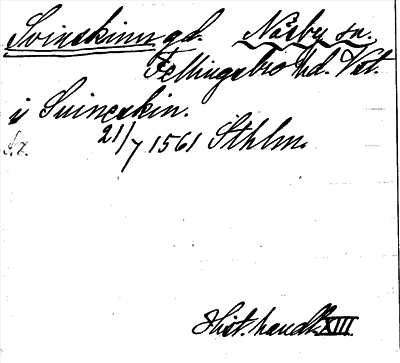 Svinskinn gd. Näsby sn.
Fellingsbro hd. Vst.
i Suineskin.
21/7 1561 Sthlm.
Hist. handl. XIII.